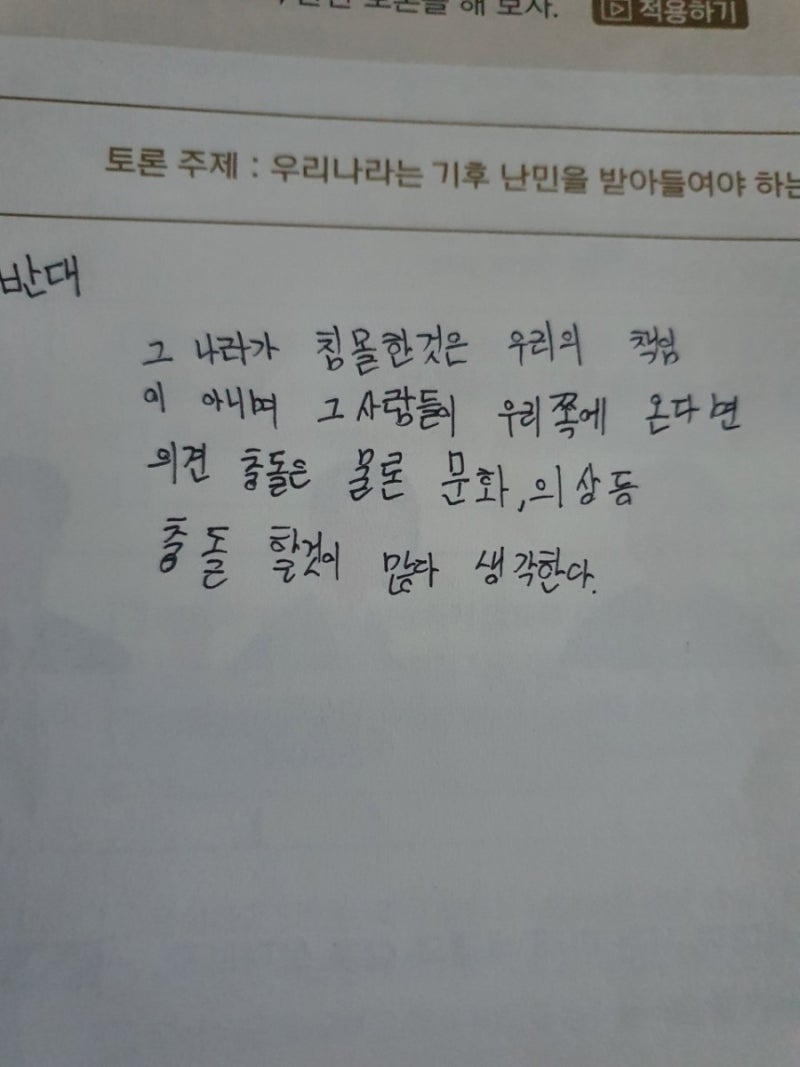 토론을 해 보자. 적용하기
토론 주제 : 우리나라는 기후 난민을 받아들여야 하는
반대
그 나라가 침몰한것은 우리의 책임
이 아니며 그 사람들이 우리 쪽에 온다면
의견 충돌은 물론 문화, 의상 등
충돌 할것이 많다 생각한다.